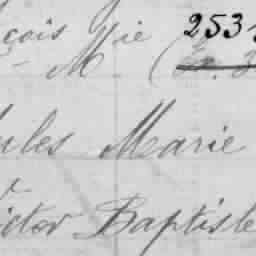 çois Mie 253
- M - (
ules Marie
ictor Baptiste